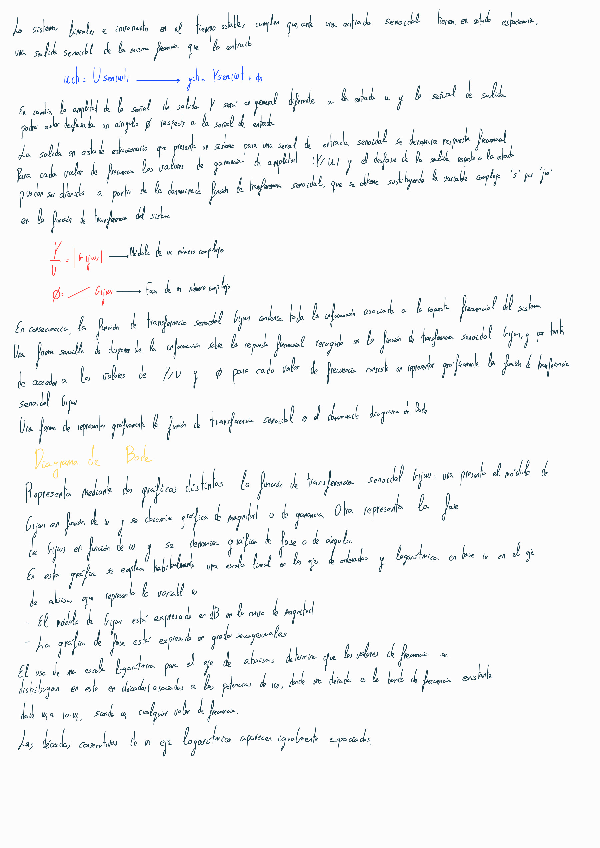 Los sistemas lineales e invariantes en el tiempo estables cumplen que ante una entrada senoidal tienen, en estado estacionario,
una salida senoidal de la misma frecuencia que la entrada
u(t) = U sen(ωt) → y(t) = Y sen(ωt + ϕ)
En cambio, la amplitud de la señal de salida Y será en general diferente a la entrada U y la señal de salida
podrá estar desfasada un ángulo ϕ respecto a la señal de entrada
La salida en estado estacionario que presenta un sistema para una señal de entrada senoidal se denomina respuesta frecuencial
Para cada valor de frecuencia los valores de ganancia de amplitud (Y/U) y el desfase de la salida respecto a la entrada
pueden ser obtenidos a partir de la denominada función de transferencia senoidal, que se obtiene sustituyendo la variable compleja "s" por "jω"
en la función de transferencia del sistema
Y/U = |G(jω)| → Módulo de un número complejo
ϕ = ∠G(jω) → Fase de un número complejo
En consecuencia, la función de transferencia senoidal G(jω) contiene toda la información asociada a la respuesta frecuencial del sistema
Una forma sencilla de disponer de la información sobre la respuesta frecuencial recogida en la función de transferencia senoidal G(jω), y por tanto
de acceder a los valores de Y/U y ϕ para cada valor de frecuencia consiste en representar gráficamente la función de transferencia
senoidal G(jω)
Una forma de representar gráficamente la función de transferencia senoidal es el denominado diagrama de Bode
Diagrama de Bode
Representa mediante dos gráficas distintas la función de transferencia senoidal G(jω) una presenta el módulo de
G(jω) en función de ω y se denomina gráfica de magnitud o de ganancia. Otra representa la fase
de G(jω) en función de ω y se denomina gráfica de fase o de ángulo.
En esta gráfica se emplea habitualmente una escala lineal en los ejes de ordenadas y logarítmica en base 10 en el eje
de abscisas que representa la variable ω
El módulo de G(jω) está expresado en dB en la curva de magnitud
- La gráfica de fase está expresada en grados sexagesimales
El uso de una escala logarítmica para el eje de abscisas determina que los valores de frecuencia se
distribuyan en este en décadas asociadas a las potencias de 10, donde una década a la banda de frecuencia existente
desde ω₁ a 10ω₁, siendo ω₁ cualquier valor de frecuencia.
Las décadas consecutivas de un eje logarítmico aparecen igualmente espaciadas.